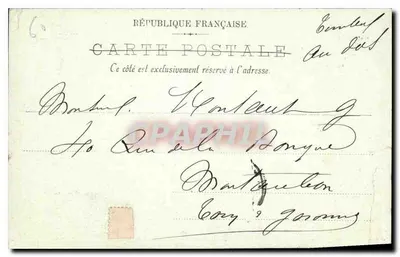 60
RÉPUBLIQUE FRANÇAISE
Timbre
CARTE POSTALE
au dos
Ce côté est exclusivement réservé à l'adresse.
Monsieur Montaut G
CPAPHIL
40 Rue de la Banque
Montauban
Tarn & Garonne